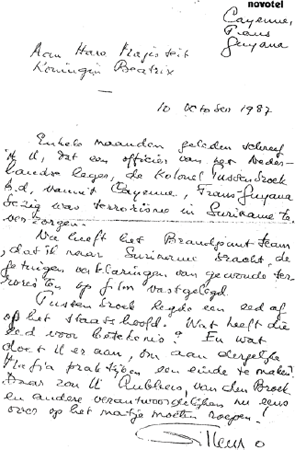 novotel
Cayenne,
Frans
Guyana
Aan Hare Majesteit
Koningin Beatrix
—
10 October 1987
Enkele maanden geleden schreef
ik U, dat een officier van het Neder-
landse leger, de Kolonel Tussenbroek
b.d., vanuit Cayenne, Frans-Guyana
bezig was terrorisme in Suriname te
verzorgen.
Nu heeft het Brandpunt team
, dat ik naar Suriname bracht, de
getuigen verklaringen van gewonde ter-
roristen op film vastgelegd.
Tussenbroek legde een eed af
op het staatshoofd. Wat heeft die
eed voor betekenis? En wat
doet U er aan, om aan dergelijke
Mafia praktijken een einde te maken?
Daar zou U Lubbers, van den Broek
en andere verantwoordelijken nu eens
over op het matje moeten roepen.